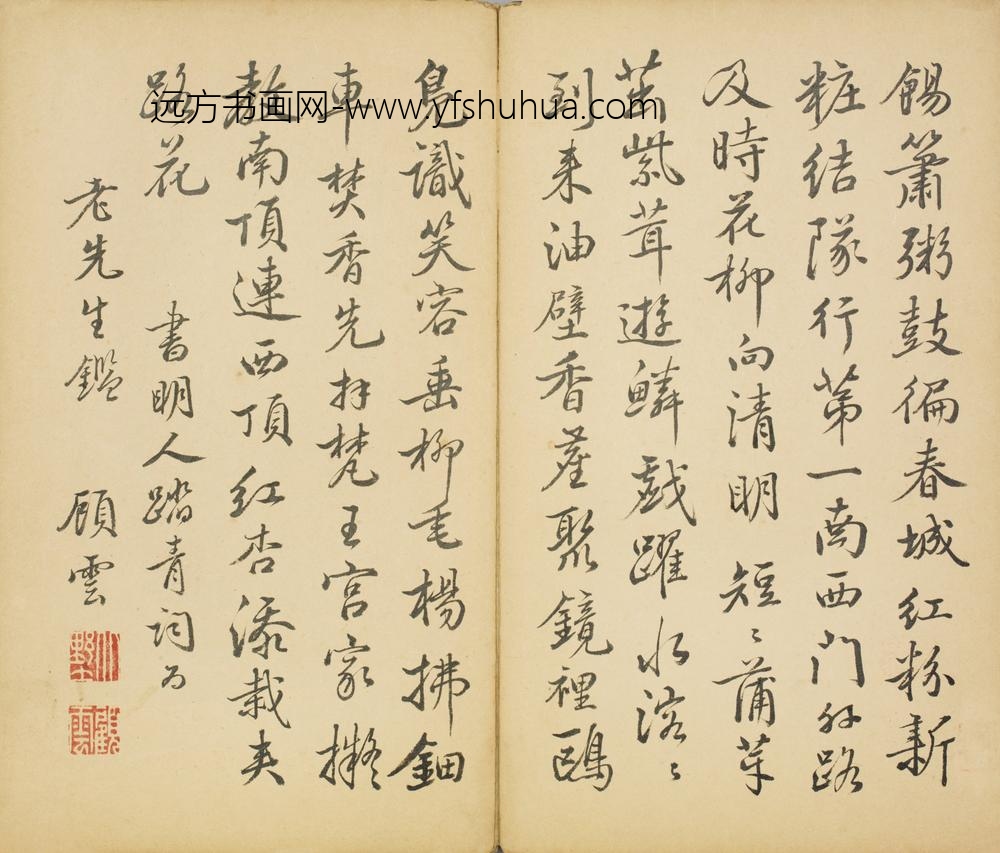 錫簫粥鼓徧春城紅粉新
粧結隊行第一南西門外路
及時花柳向清明短〻蒲芽
紫茸遊鱗戲躍水溶〻
到来油壁香塵聚鏡裡鷗
鳬識笑容垂柳毛楊拂鈿
車焚香先拜梵王宮家擬
南頂連西頂紅杏添栽夾
路花
書明人踏青詞為
老先生鑑
顧雲
遠方书画网-www.yfshuhua.com